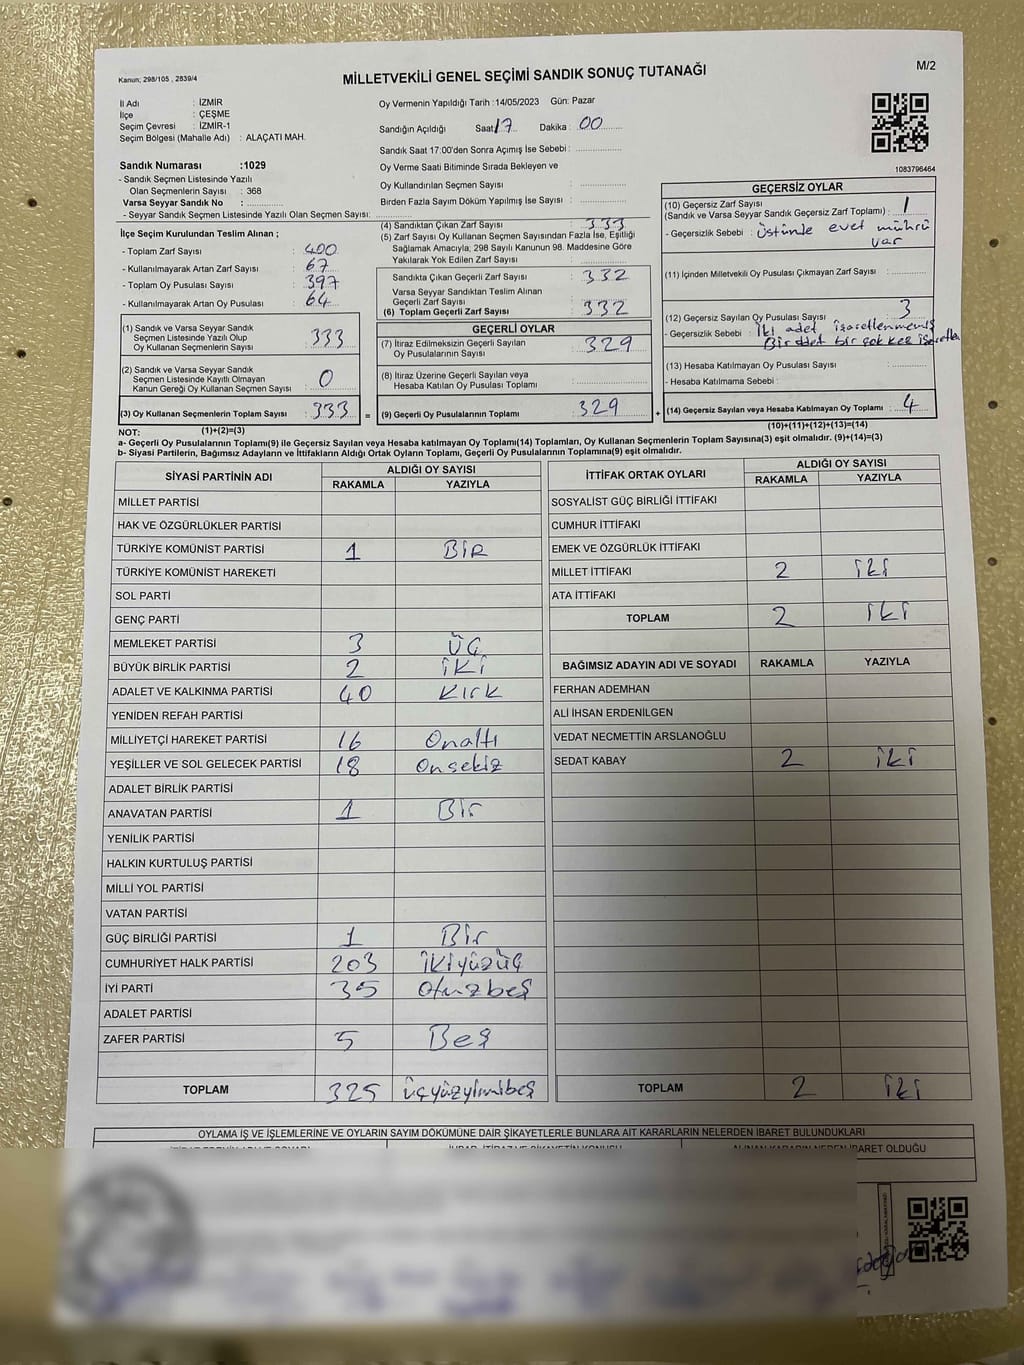 Kanun; 298/105 , 2839/4
MİLLETVEKİLİ GENEL SEÇİMİ SANDIK SONUÇ TUTANAĞI
M/2
İl Adı : İZMİR
İlçe : ÇEŞME
Seçim Çevresi : İZMİR-1
Seçim Bölgesi (Mahalle Adı) : ALAÇATI MAH.
Sandık Numarası :1029
- Sandık Seçmen Listesinde Yazılı
Olan Seçmenlerin Sayısı : 368
Varsa Seyyar Sandık No :
- Seyyar Sandık Seçmen Listesinde Yazılı Olan Seçmen Sayısı:
Oy Vermenin Yapıldığı Tarih :14/05/2023 Gün: Pazar
Sandığın Açıldığı Saat 17 Dakika : 00
Sandık Saat 17:00'den Sonra Açımış İse Sebebi :
Oy Verme Saati Bitiminde Sırada Bekleyen ve
Oy Kullandırılan Seçmen Sayısı :
Birden Fazla Sayım Döküm Yapılmış İse Sayısı :
1083796464
İlçe Seçim Kurulundan Teslim Alınan ;
- Toplam Zarf Sayısı : 400
- Kullanılmayarak Artan Zarf Sayısı : 67
- Toplam Oy Pusulası Sayısı : 397
- Kullanılmayarak Artan Oy Pusulası : 64
(1) Sandık ve Varsa Seyyar Sandık
Seçmen Listesinde Yazılı Olup
Oy Kullanan Seçmenlerin Sayısı : 333
(2) Sandık ve Varsa Seyyar Sandık
Seçmen Listesinde Kayıtlı Olmayan
Kanun Gereği Oy Kullanan Seçmen Sayısı : 0
(3) Oy Kullanan Seçmenlerin Toplam Sayısı : 333 =
(1)+(2)=(3)
(4) Sandıktan Çıkan Zarf Sayısı : 333
(5) Zarf Sayısı Oy Kullanan Seçmen Sayısından Fazla İse, Eşitliği
Sağlamak Amacıyla, 298 Sayılı Kanunun 98. Maddesine Göre
Yakılarak Yok Edilen Zarf Sayısı :
Sandıkta Çıkan Geçerli Zarf Sayısı : 332
Varsa Seyyar Sandıktan Teslim Alınan
Geçerli Zarf Sayısı :
(6) Toplam Geçerli Zarf Sayısı : 332
GEÇERLİ OYLAR
(7) İtiraz Edilmeksizin Geçerli Sayılan
Oy Pusulalarının Sayısı : 329
(8) İtiraz Üzerine Geçerli Sayılan veya
Hesaba Katılan Oy Pusulası Toplamı :
(9) Geçerli Oy Pusulalarının Toplamı : 329 +
GEÇERSİZ OYLAR
(10) Geçersiz Zarf Sayısı
(Sandık ve Varsa Seyyar Sandık Geçersiz Zarf Toplamı) : 1
- Geçersizlik Sebebi : üstünde evet mührü
var
(11) İçinden Milletvekili Oy Pusulası Çıkmayan Zarf Sayısı :
(12) Geçersiz Sayılan Oy Pusulası Sayısı : 3
- Geçersizlik Sebebi : İki adet işaretlenmemiş
Bir adet bir çok kez
(13) Hesaba Katılmayan Oy Pusulası Sayısı :
- Hesaba Katılmama Sebebi :
(14) Geçersiz Sayılan veya Hesaba Katılmayan Oy Toplamı : 4
(10)+(11)+(12)+(13)=(14)
NOT:
a- Geçerli Oy Pusulalarının Toplamı(9) ile Geçersiz Sayılan veya Hesaba katılmayan Oy Toplamı(14) Toplamları, Oy Kullanan Seçmenlerin Toplam Sayısına(3) eşit olmalıdır. (9)+(14)=(3)
b- Siyasi Partilerin, Bağımsız Adayların ve İttifakların Aldığı Ortak Oyların Toplamı, Geçerli Oy Pusulalarının Toplamına(9) eşit olmalıdır.
SİYASİ PARTİNİN ADI ALDIĞI OY SAYISI
RAKAMLA YAZIYLA
MİLLET PARTİSİ
HAK VE ÖZGÜRLÜKLER PARTİSİ
TÜRKİYE KOMÜNİST PARTİSİ 1 BİR
TÜRKİYE KOMÜNİST HAREKETİ
SOL PARTİ
GENÇ PARTİ
MEMLEKET PARTİSİ 3 ÜÇ
BÜYÜK BİRLİK PARTİSİ 2 iki
ADALET VE KALKINMA PARTİSİ 40 Kırk
YENİDEN REFAH PARTİSİ
MİLLİYETÇİ HAREKET PARTİSİ 16 Onaltı
YEŞİLLER VE SOL GELECEK PARTİSİ 18 Onsekiz
ADALET BİRLİK PARTİSİ
ANAVATAN PARTİSİ 1 Bir
YENİLİK PARTİSİ
HALKIN KURTULUŞ PARTİSİ
MİLLİ YOL PARTİSİ
VATAN PARTİSİ
GÜÇ BİRLİĞİ PARTİSİ 1 Bir
CUMHURİYET HALK PARTİSİ 203 ikiyüzüç
İYİ PARTİ 35 otuzbeş
ADALET PARTİSİ
ZAFER PARTİSİ 5 Beş
TOPLAM 325 üçyüzyirmibeş
İTTİFAK ORTAK OYLARI ALDIĞI OY SAYISI
RAKAMLA YAZIYLA
SOSYALİST GÜÇ BİRLİĞİ İTTİFAKI
CUMHUR İTTİFAKI
EMEK VE ÖZGÜRLÜK İTTİFAKI
MİLLET İTTİFAKI 2 iki
ATA İTTİFAKI
TOPLAM 2 iki
BAĞIMSIZ ADAYIN ADI VE SOYADI RAKAMLA YAZIYLA
FERHAN ADEMHAN
ALİ İHSAN ERDENİLGEN
VEDAT NECMETTİN ARSLANOĞLU
SEDAT KABAY 2 iki
TOPLAM 2 iki
OYLAMA İŞ VE İŞLEMLERİNE VE OYLARIN SAYIM DÖKÜMÜNE DAİR ŞİKAYETLERLE BUNLARA AİT KARARLARIN NELERDEN İBARET BULUNDUKLARI